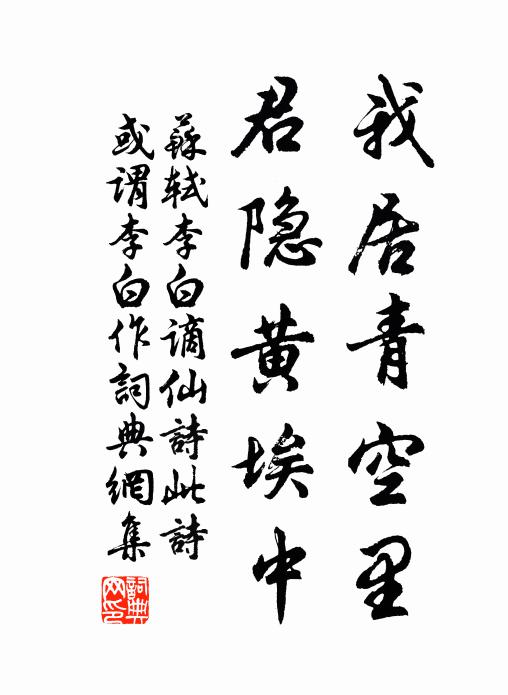 我居青空里
君隐黄埃中
蘇軾李白謫仙詩此詩
或谓李白作詞典網集
詞典網印